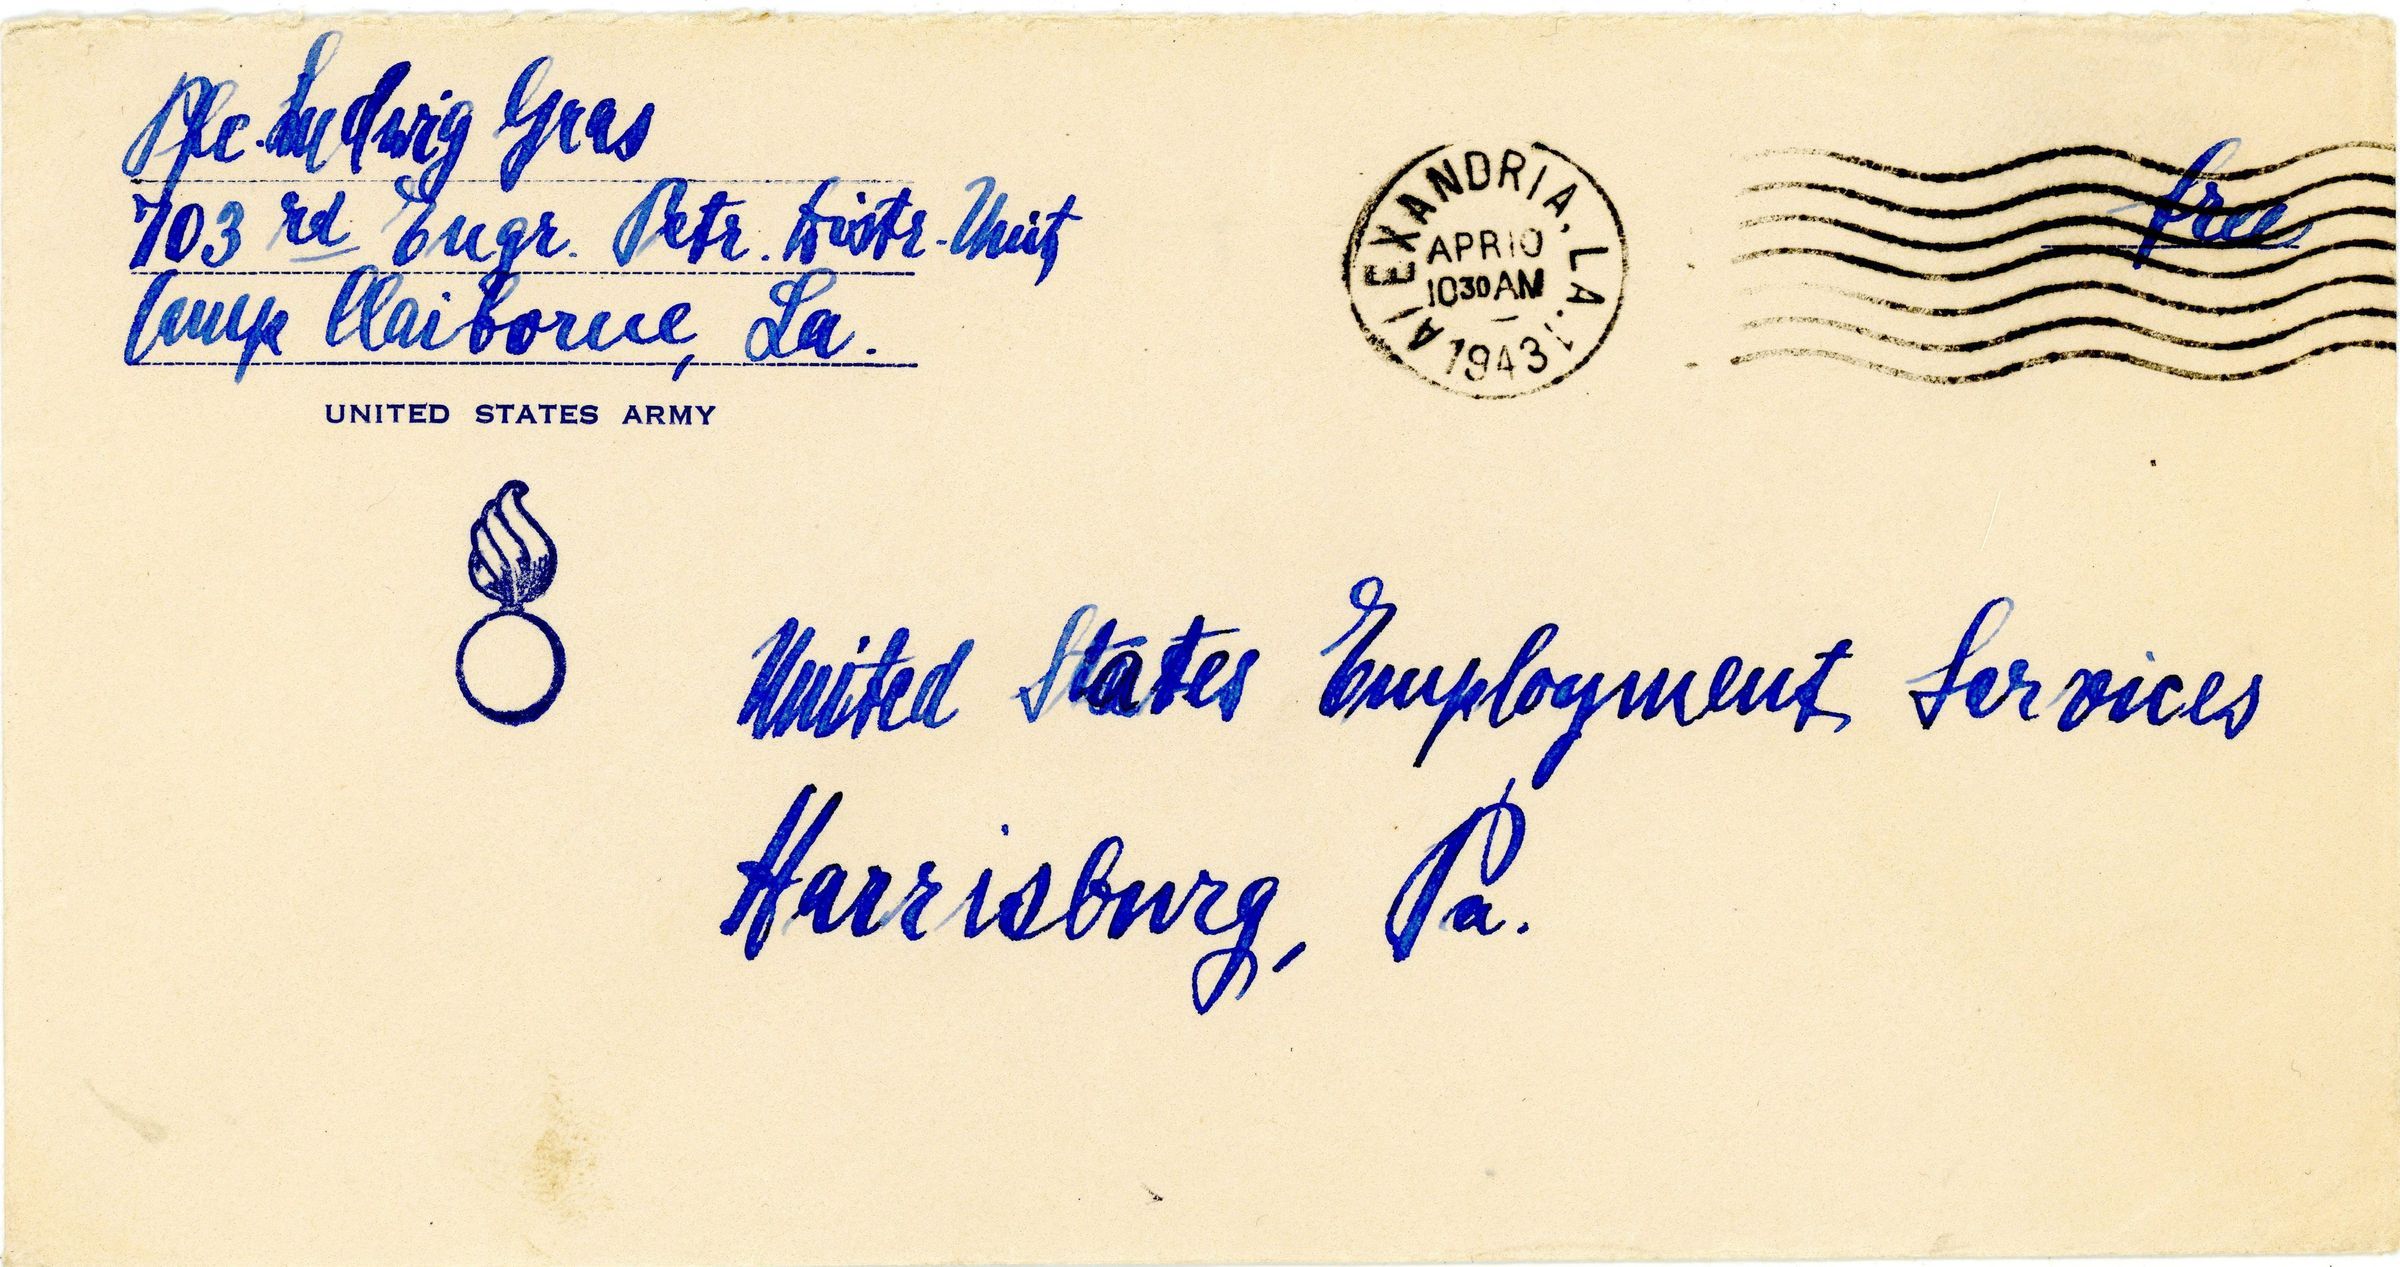 Pfc. Ludwig Gras
703 rd Engr. Petr. Distr. Unit
Camp Claiborne, La.
UNITED STATES ARMY
ALEXANDRIA, LA. 1
APR 10
10 30 AM
1943
free
United States Employment Services
Harrisburg, Pa.